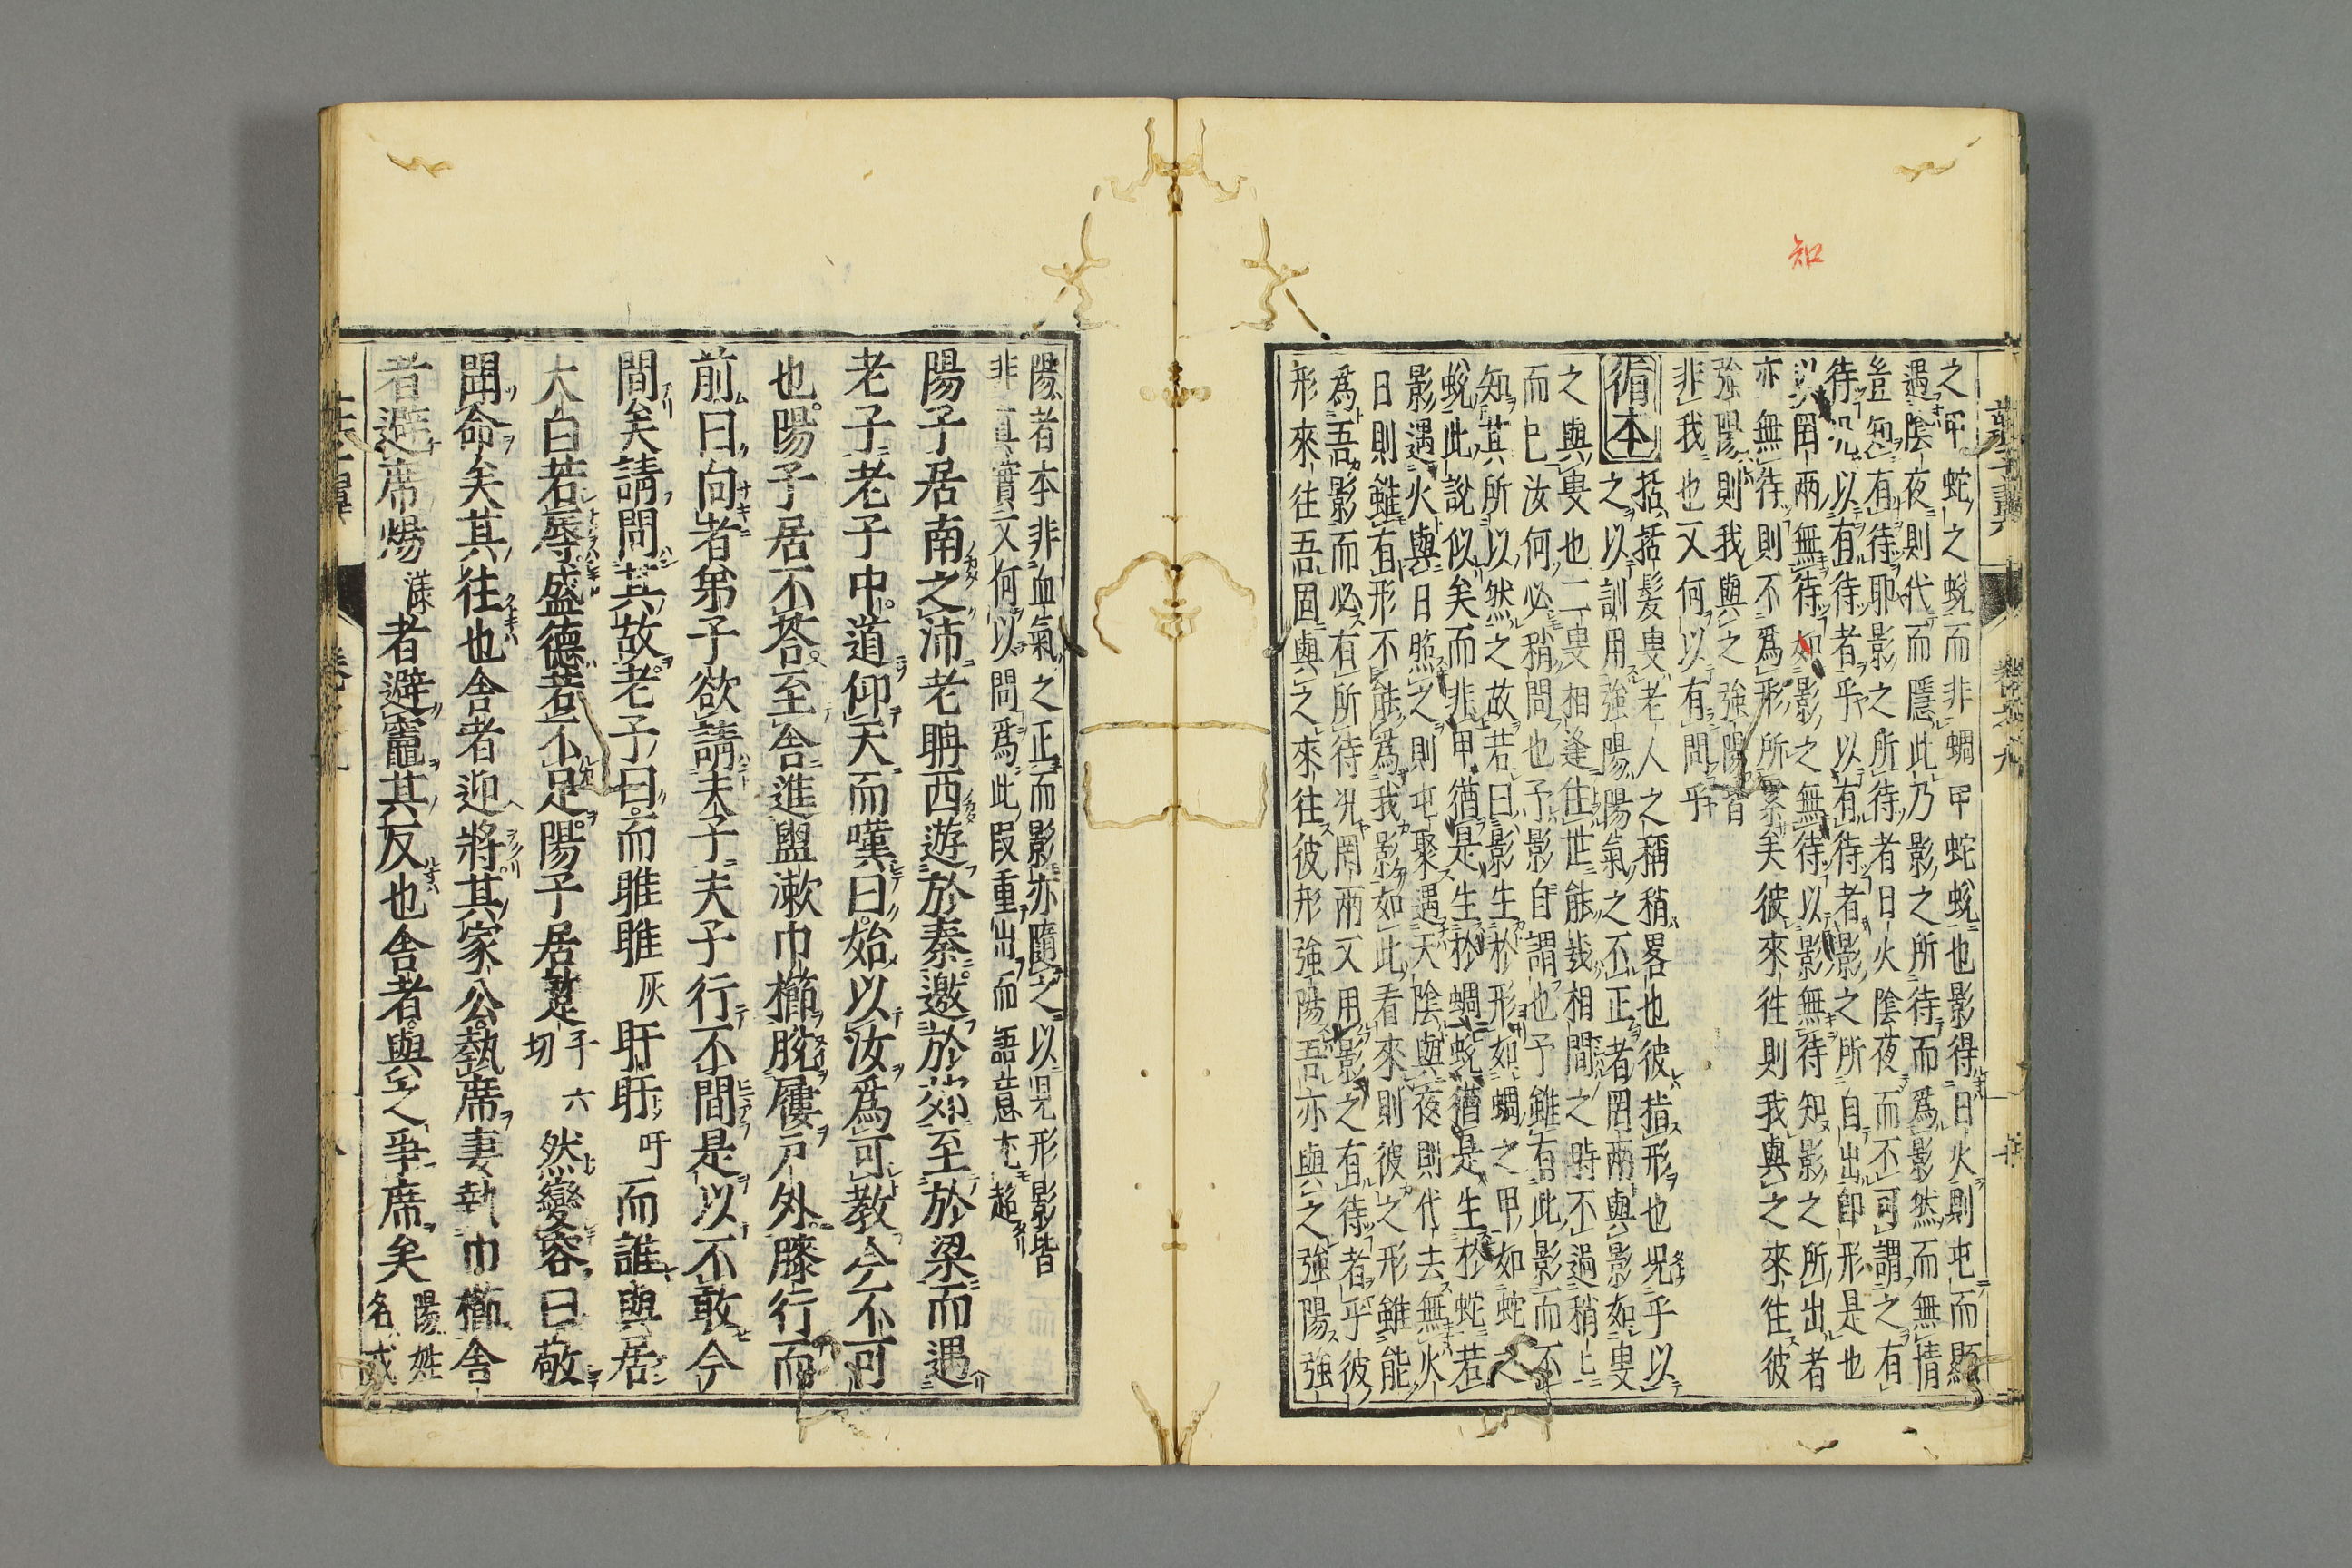 知
之甲蛇之蛻而非蜩甲蛇蛻也影得日火則屯而顯
遇陰夜則代而隱此乃影之所待而爲影然而無情
豈知有待耶影之所待者日火陰夜而不可謂之有
待況以有待者乎以有待者影之所自出卽形是也
以罔兩無待知影之無待以影無待知影之所出者
亦無待則不爲形所累矣彼來徃則我與之來徃彼
強陽則我與之強陽皆
非我也又何以有問乎
循本
括括髮叟老人之稱稍畧也彼指形也況乎以
之以訓用強陽陽氣之不正者罔兩與影如叟
之與叟也二叟相逢徃世能哉相間之時不過稍上
而已汝何必稍問也予影自謂也予雖有此影而不
知其所以然之故若曰影生於形如蜩之甲如蛇之
蛻此說似矣而非甲猶是生於蜩蛻猶是生於蛇若
影遇火與日照之則屯聚遇天陰與夜則代去無火
日則雖有形不能爲我影如此看來則彼之形雖能
爲吾影而必有所待况罔兩又用影之有待者乎彼
形來徃吾固與之來徃彼形強陽吾亦與之強陽強
陽者本非血氣之正而影亦隨之以況形影皆
非真實又何以問爲此段重出而語意尤超
陽子居南之沛老聃西遊於秦邀於郊至於梁而遇
老子老子中道仰天而嘆曰始以汝爲可教今不可
也陽子居不荅至舍進盥漱巾櫛脫屨戶外膝行而
前曰向者弟子欲請夫子夫子行不間是以不敢今
間矣請問其故老子曰而睢睢灰盱盱吁而誰與居
大白若辱盛德若不足陽子居蹵子六切然變容曰敬
聞命矣其徃也舍者迎將其家公執席妻執巾櫛舍
者避席煬漾者避竈其反也舍者與之爭席矣陽姓名戎